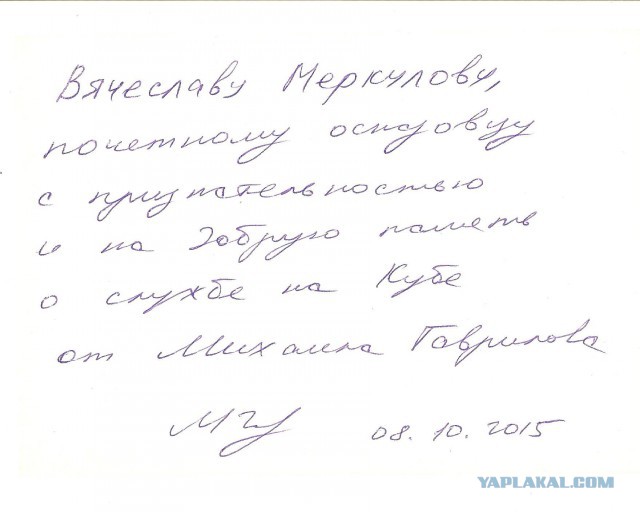 Вячеславу Меркулову,
почетному осназовцу
с признательностью
и на добрую память
о службе на Кубе
от Михаила Гаврилова
08.10.2015
YAPLAKAL.COM